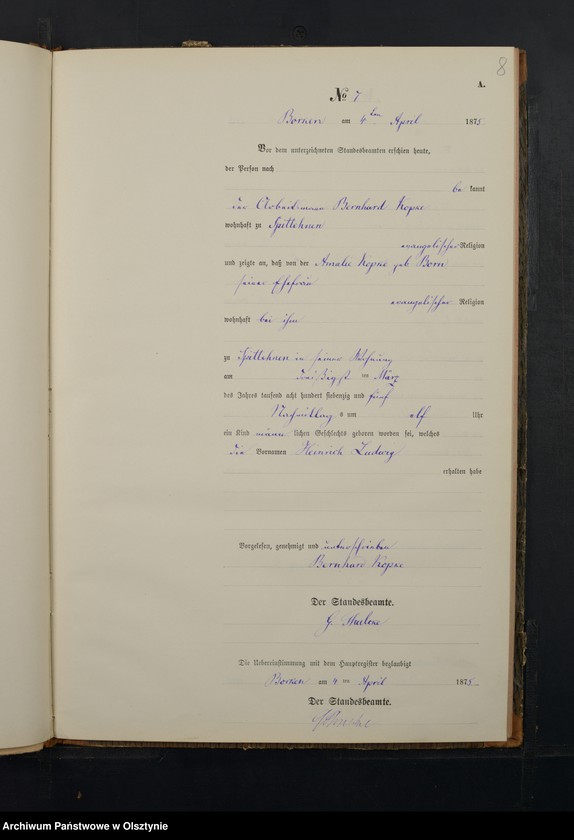 8
A.
No 7
Borken am 4ten April 1875
Vor dem unterzeichneten Standesbeamten erschien heute,
der Person nach
be kannt
der Arbeitsmann Bernhard Kopke
wohnhaft zu Spittehnen
evangelischer Religion
und zeigte an, daß von der Amalie Kopke geb Born
seiner Ehefrau
evangelischer Religion
wohnhaft bei ihm
zu Spittehnen in seiner Wohnung
am dreißigst ten März
des Jahres tausend acht hundert siebenzig und fünf
Nachmittag s um elf Uhr
ein Kind männ lichen Geschlechts geboren worden sei, welches
die Vornamen Heinrich Ludwig
erhalten habe
Vorgelesen, genehmigt und unterschrieben
Bernhard Kopke
Der Standesbeamte.
Die Uebereinstimmung mit dem Hauptregister beglaubigt
Borken am 4 ten April 1875
Der Standesbeamte.
Archiwum Państwowe w Olsztynie